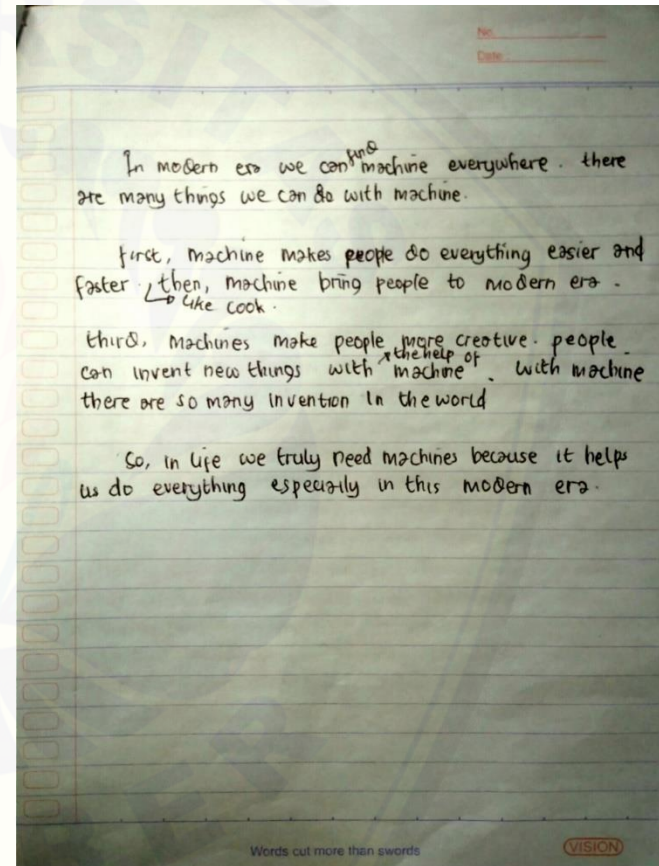 No.
Date :
In modern era we can find machine everywhere. there
are many things we can do with machine.
first, machine makes people do everything easier and
faster, then, machine bring people to modern era.
like cook.
third, machines make people more creative. people
can invent new things with the help of machine. with machine
there are so many invention in the world
So, in life we truly need machines because it helps
us do everything especially in this modern era.
Words cut more than swords
VISION